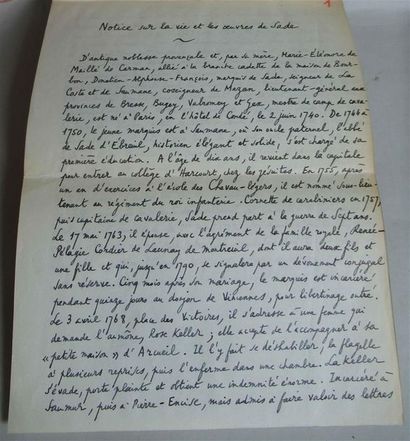 1
Notice sur la vie et les œuvres de Sade
~
D'antique noblesse provençale et, par sa mère, Marie-Eléonore de
Maillé de Carman, allié à la branche cadette de la maison de Bour-
bon, Donatien-Alphonse-François, marquis de Sade, seigneur de La
Coste et de Saumane, coseigneur de Mazan, lieutenant-général aux
provinces de Bresse, Bugey, Valromey et Gex, mestre de camp de cava-
lerie, est né à Paris, en l'hôtel de Condé, le 2 juin 1740. De 1744 à
1750, le jeune marquis est à Saumane, où son oncle paternel, l'abbé
de Sade d'Ebreuil, historien élégant et solide, s'est chargé de sa
première éducation. A l'âge de dix ans, il revient dans la capitale
pour entrer au collège d'Harcourt, chez les jésuites. En 1755, après
un an d'exercices à l'école des Chevau-légers, il est nommé sous-lieu-
tenant au régiment du roi infanterie. Cornette de carabiniers en 1757,
puis capitaine de cavalerie, Sade prend part à la guerre de Sept ans.
Le 17 mai 1763, il épouse, avec l'agrément de la famille royale, Renée-
Pélagie Cordier de Launay de Montreuil, dont il aura deux fils et
une fille et qui, jusqu'en 1790, se signalera par un dévouement conjugal
sans réserve. Cinq mois après son mariage, le marquis est incarcéré
pendant quinze jours au donjon de Vincennes, pour libertinage outré.
Le 3 avril 1768, place des Victoires, il s'adresse à une femme qui
demande l'aumône, Rose Keller ; elle accepte de l'accompagner à sa
« petite maison » d'Arcueil. Il l'y fait se déshabiller, la flagelle
à plusieurs reprises, puis l'enferme dans une chambre. La Keller
s'évade, porte plainte et obtient une indemnité énorme. Incarcéré à
Saumur, puis à Pierre-Encise, mais admis à faire valoir des lettres